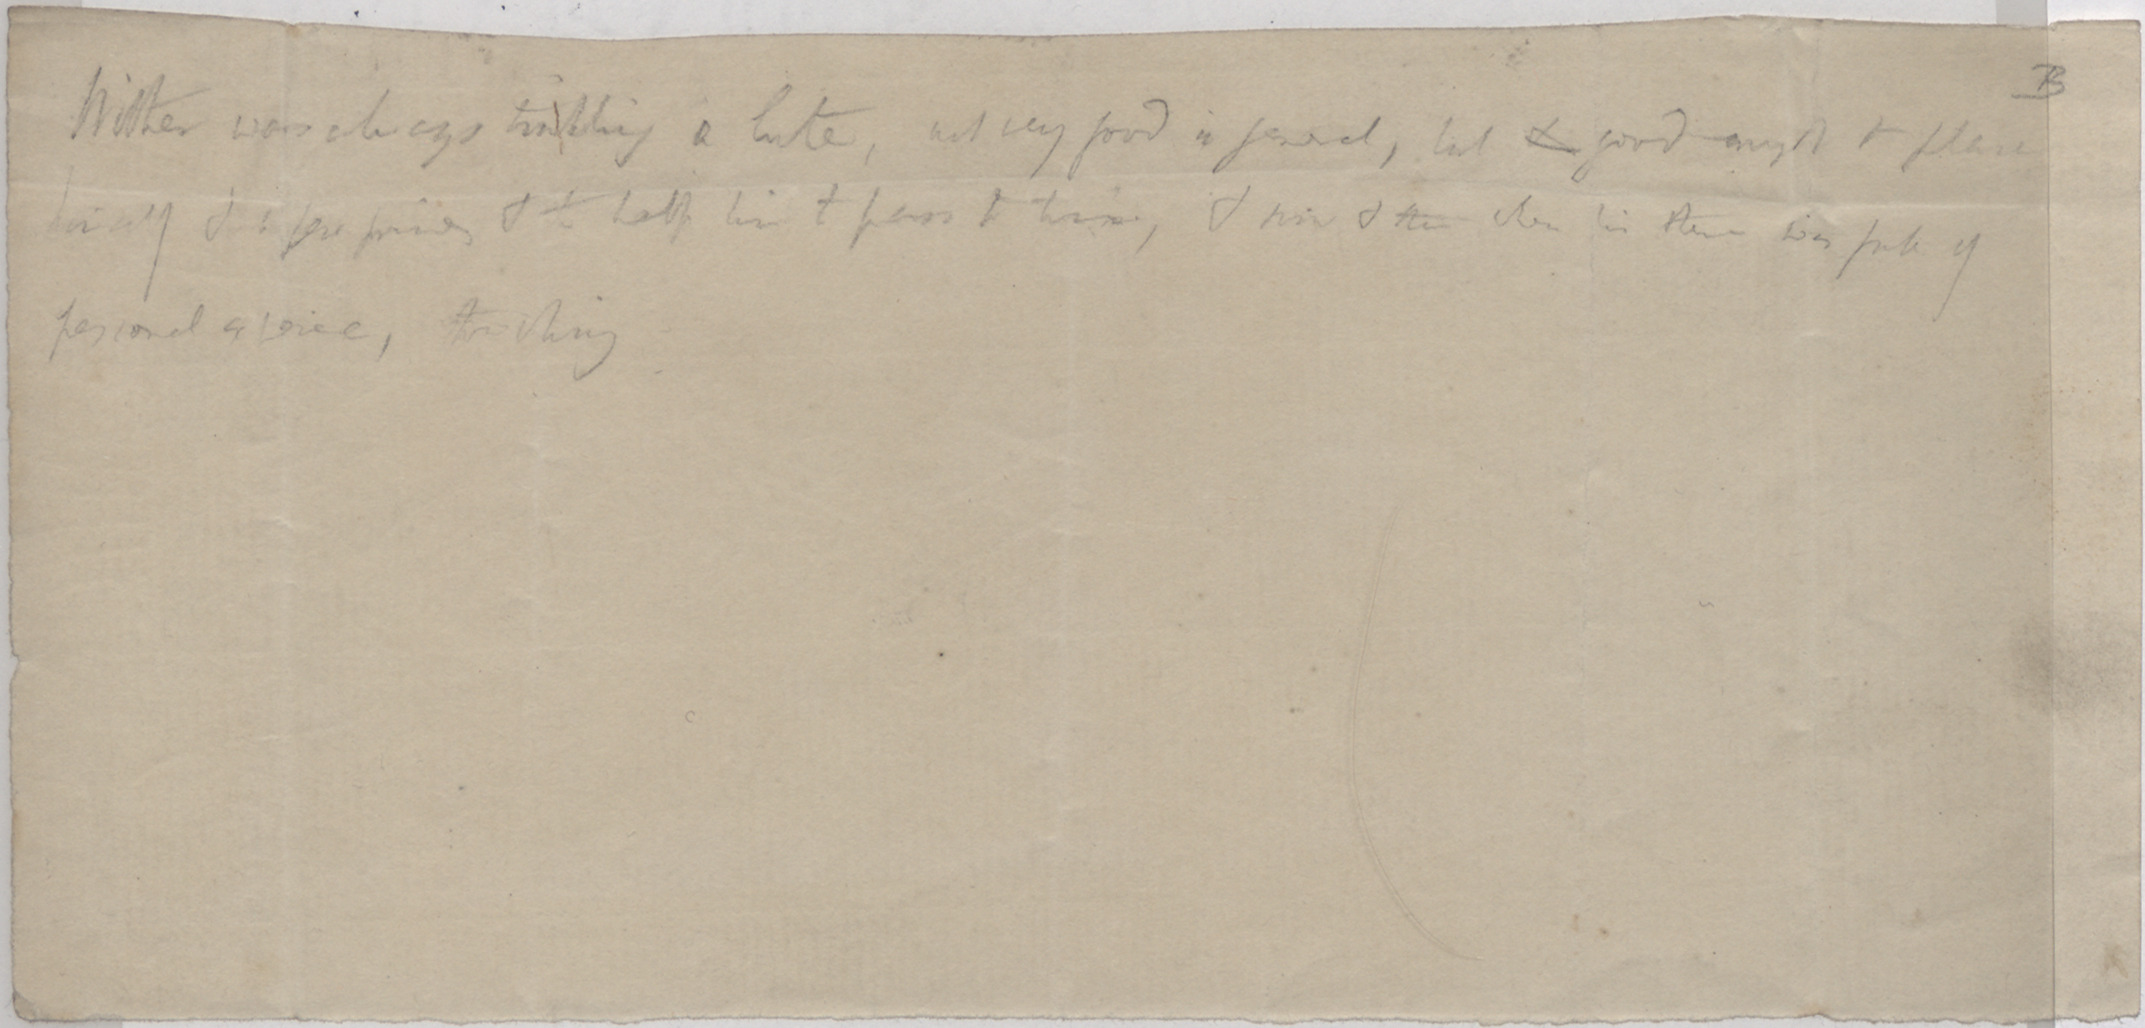 B
Wither was always twiddling a lute, not very good in general, but good enough to please
himself & a few friends & to help him to pass the time, & now & then when his theme was full of
personal advice, touching